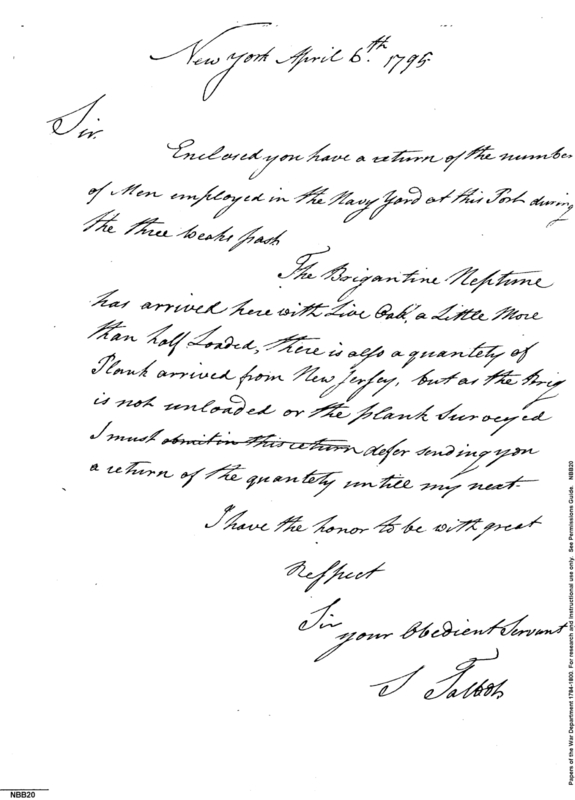 New York April 6.th 1795
Sir.
Enclosed you have a return of the number
of Men employed in the Navy Yard at this Port during
the three weaks past
The Brigantine Neptune
has arrived here with Live Oak, a Little More
than half Loaded, there is also a quantety of
Plank arrived from New Jersey, but as the Brig
is not unloaded or the plank Surveyed
I must obmit in this return defer sending you
a return of the quantety untill my next.
I have the honor to be with great
Respect
Sir
your Obedient Servant
S Talbot
Papers of the War Department 1784-1800. For research and instructional use only. See Permissions Guide. NBB20
NBB20